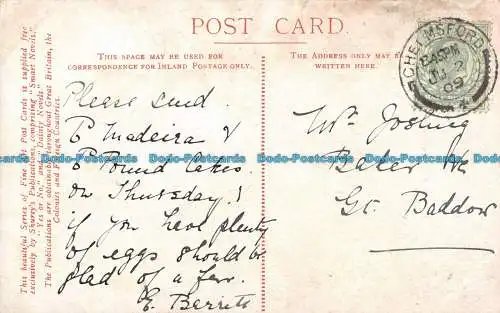 POST CARD.
THIS SPACE MAY BE USED FOR
CORRESPONDENCE FOR INLAND POSTAGE ONLY.
THE ADDRESS ONLY MAY
WRITTEN HERE.
This beautiful Series of Fine Art Post Cards is supplied free
exclusively by Shurey's Publications, comprising "Smart Novels,"
"Yes or No," and "Dainty Novels"
The Publications are obtainable throughout Great Britain, the
Colonies and Foreign Countries.
CHELMSFORD
JU
09
Please send
Madeira &
Pound Cakes
on Thursday !
if you have plenty
of eggs should be
glad of a few.
E. Barritt
Mr Josling
Baker
Gt. Baddow
Bdo-Postcards Bdo-Postcards Bdo-Postcards Bdo-Postcards